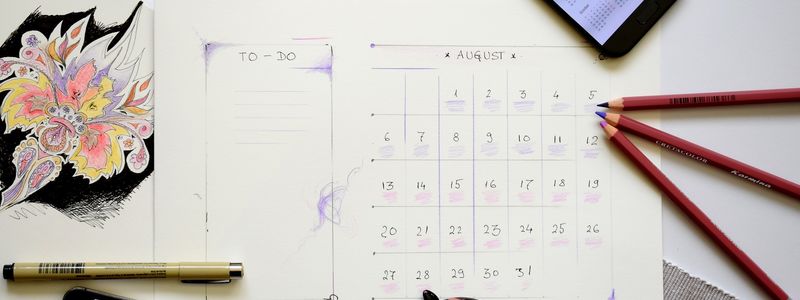 TO-DO
* AUGUST *
1 2 3 4 5
6 7 8 9 10 11 12
13 14 15 16 17 18 19
20 21 22 23 24 25 26
27 28 29 30 31
CRETACOLOR Karmina